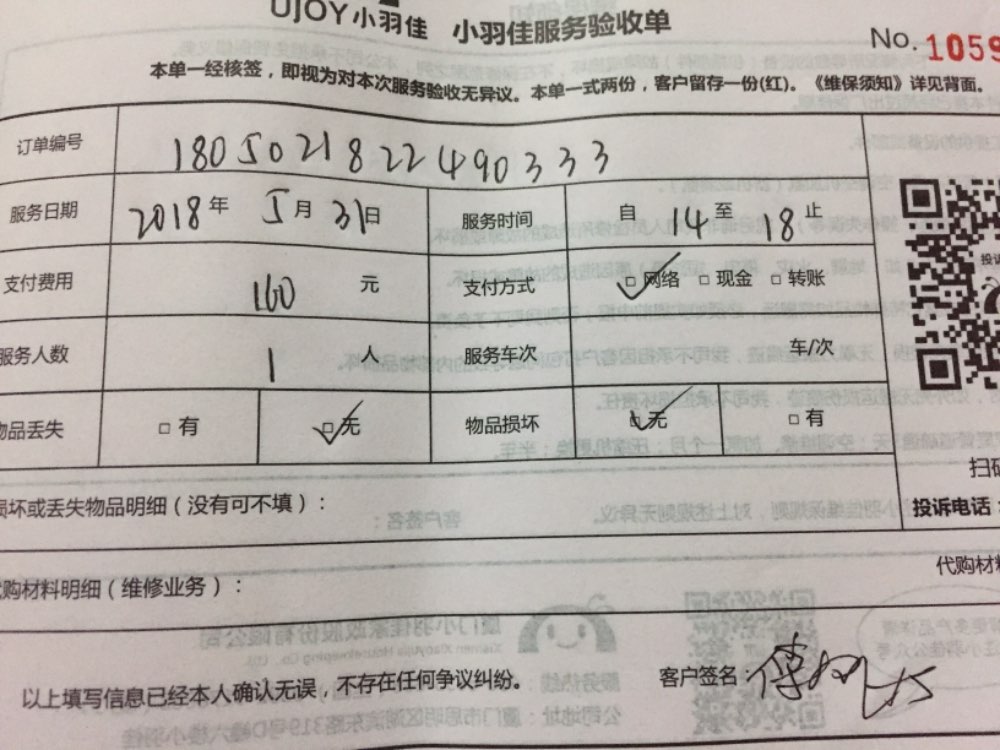 UJOY小羽佳 小羽佳服务验收单
No. 1059
本单一经核签，即视为对本次服务验收无异议。本单一式两份，客户留存一份(红)。《维保须知》详见背面。
订单编号 180502182249033​3
服务日期 2018年 5月 31日 服务时间 自 14 至 18 止
支付费用 160 元 支付方式 □网络 □现金 □转账
服务人数 1 人 服务车次 车/次
物品丢失 □有 □无 物品损坏 □无 □有
损坏或丢失物品明细（没有可不填）：
投诉电话：
代购材料明细（维修业务）：
代购材料
以上填写信息已经本人确认无误，不存在任何争议纠纷。 客户签名：